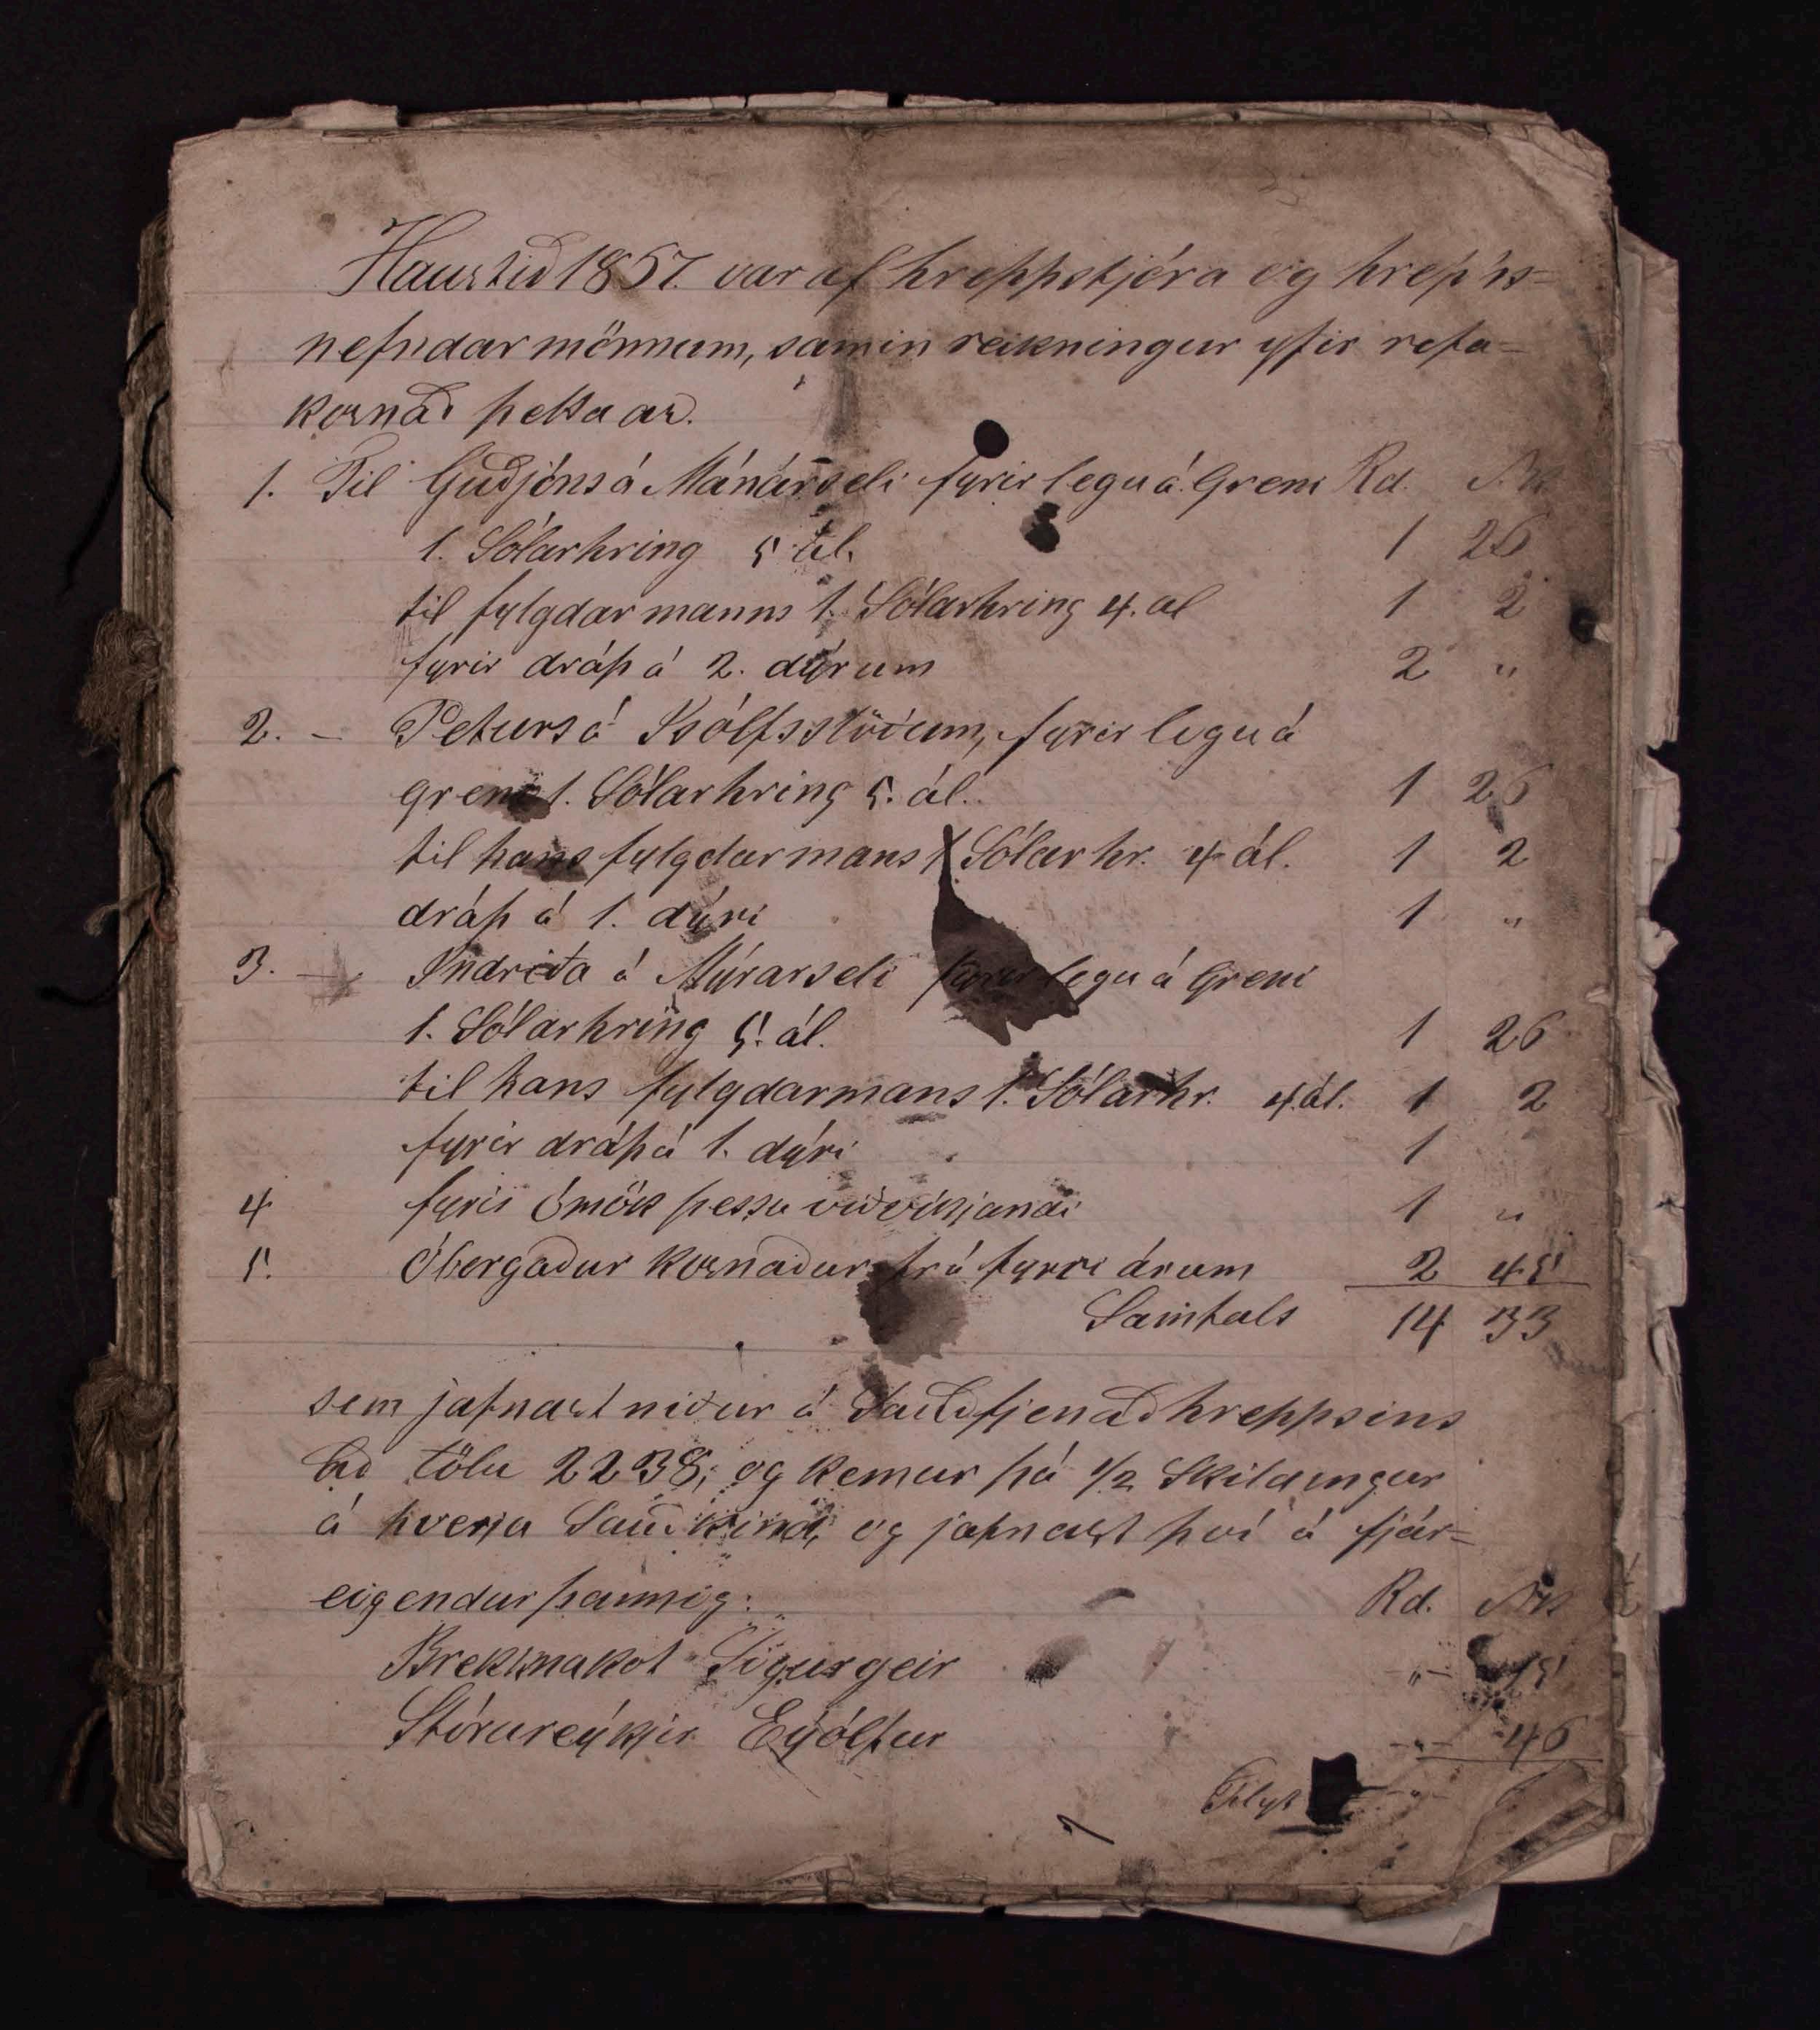 Haustið 1857. var af hreppstjóra og hreps=
nefndarmönnum, samin reikningur yfir refa=
kosnað þetta ár.
1. Til Guðjóns á Mánárseli fyrir legu á Greni Rd. Sk
1. Sólarhring 5 ál. 1 26
til fylgdarmanns 1. Sólarhring 4. al 1 2
fyrir dráp á 2. dýrum 2 "
2. – Peturs á Ísólfsstöðum, fyrir legu á
greni 1. Sólarhring 5. ál. 1 26
til hans fylgdarmans 1 Sólarhr. 4 ál. 1 2
dráp á 1. dýri 1 "
3. – Indriða á Mýrarseli fyrir legu á Greni
1. Sólarhring 5. ál. 1 26
til hans fylgdarmans 1. Sólarhr. 4. ál. 1 2
fyrir dráp á 1. dýri 1 "
4 fyrir ómök þessu viðvíkjandi 1 "
5. Óborgaður kosnaður frá fyrri árum 2 45
Samtals 14 33
sem jafnast niður á Sauðfjenað hreppsins
að tölu 2238, og kemur þá 1/2 Skildingur
á hverja Sauðkind, og jafnast því á fjár=
eigendur þannig: Rd. Sk
Brekknakot Sigurgeir " 45
Stórureýkjir Eýólfur " 46
Flyt "